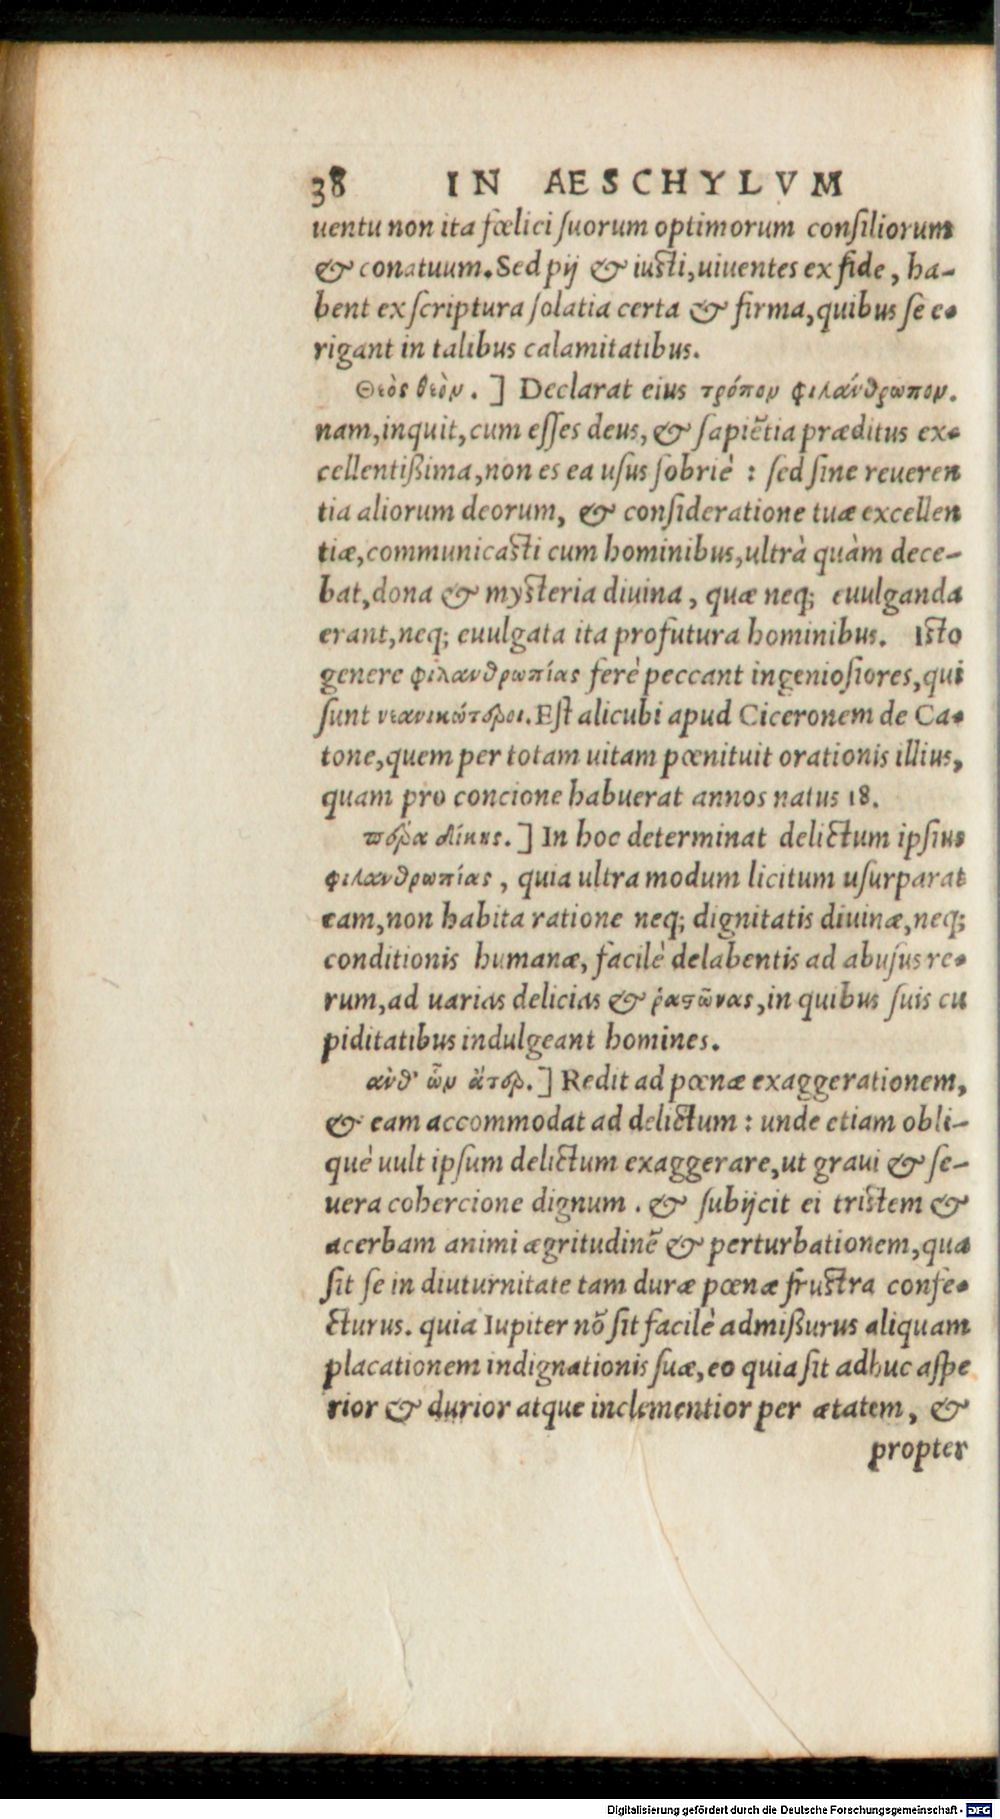 38 IN AESCHYLVM
uentu non ita fœlici suorum optimorum consiliorum
& conatuum. Sed pij & iusti, uiuentes ex fide, ha-
bent ex scriptura solatia certa & firma, quibus se e-
rigant in talibus calamitatibus.
Θεὸς θεὸν. ] Declarat eius τρόπον φιλάνθρωπον.
nam, inquit, cum esses deus, & sapiẽtia præditus ex-
cellentißima, non es ea usus sobriè : sed sine reueren
tia aliorum deorum, & consideratione tuæ excellen
tiæ, communicasti cum hominibus, ultrà quàm dece-
bat, dona & mysteria diuina, quæ neq; euulganda
erant, neq; euulgata ita profutura hominibus. Isto
genere φιλανθρωπίας ferè peccant ingeniosiores, qui
sunt νεανικώτεροι. Est alicubi apud Ciceronem de Ca-
tone, quem per totam uitam pœnituit orationis illius,
quam pro concione habuerat annos natus 18.
πέρα δίκης. ] In hoc determinat delictum ipsius
φιλανθρωπίας, quia ultra modum licitum usurparat
eam, non habita ratione neq; dignitatis diuinæ, neq;
conditionis humanæ, facilè delabentis ad abusus re-
rum, ad uarias delicias & ῥαστῶνας, in quibus suis cu
piditatibus indulgeant homines.
ἀνθ' ὧν ἄτερ. ] Redit ad pœnæ exaggerationem,
& eam accommodat ad delictum : unde etiam obli-
què uult ipsum delictum exaggerare, ut graui & se-
uera cohercione dignum. & subijcit ei tristem &
acerbam animi ægritudinẽ & perturbationem, qua
sit se in diuturnitate tam duræ pœnæ frustra confe-
cturus. quia Iupiter nõ sit facilè admißurus aliquam
placationem indignationis suæ, eo quia sit adhuc aspe
rior & durior atque inclementior per ætatem, &
propter
Digitalisierung gefördert durch die Deutsche Forschungsgemeinschaft - DFG